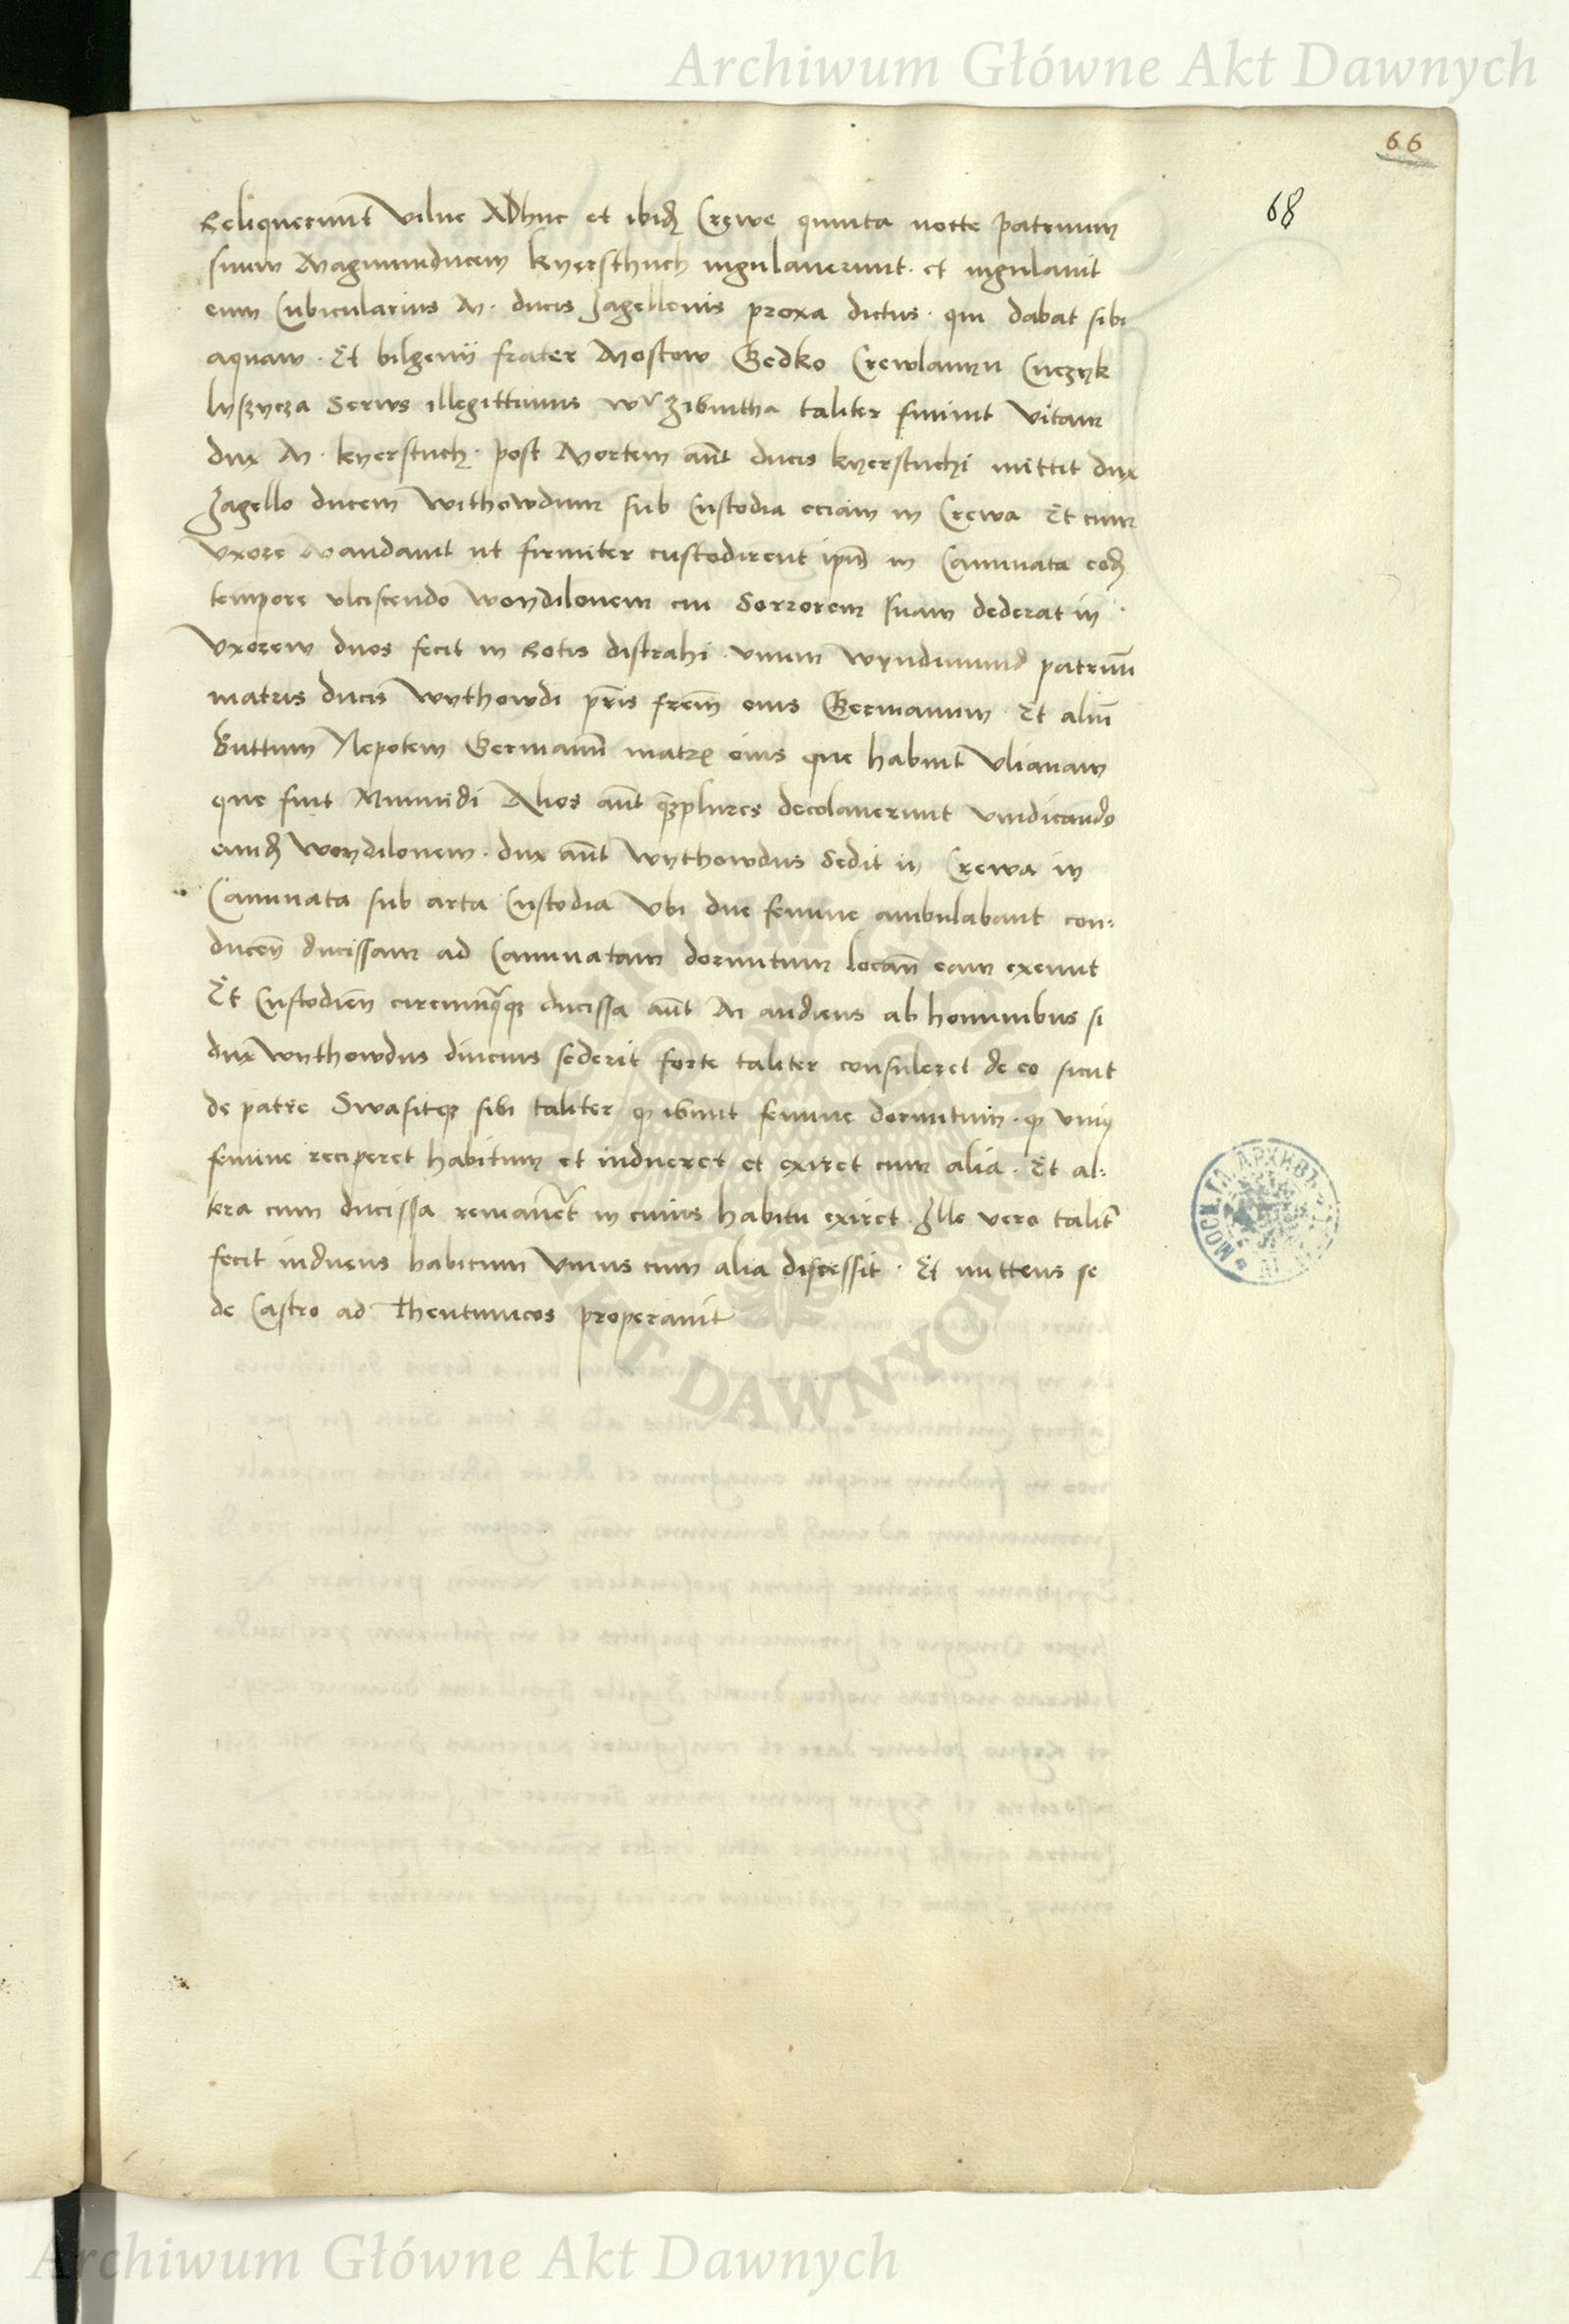 Archiwum Główne Akt Dawnych
66
68
Reliquerunt Vilne ADhuc et ibid Crewe quinta nocte patruum
suum Magnumducem kyersthuch iugulaverunt. et iugulavit
eum Cubicularius M. ducis Jagellonis proxa dictus. qui dabat sibi
aquam. Et bilgenii frater Mostow Gedko Crewlanyn Cuczyk
lyszycza Servs illegittimus taliter finiuit Vitam
dux M. kyerstuch. post Mortem aut ducis kyerstuchi mittit dux
Jagello ducem Withowdum sub Custodia eciam in Crewa Et cum
Vxore Mandavit ut firmiter custodirent ipm in Camnata eod
tempore vlciscendo Woydilonem cui Sorrorem suam dederat in
Vxorem duos fecit in Rotis distrahi. vnum patruu
matris ducis Wythowdi pris frem eius Germanum. Et aliu
Buttum Nepotem Germanu matris eius que habuit Vlianam
que fuit Alios aut qplures decolaverunt vindicando
eund Woydilonem. dux aut Wythowdus Sedit in Crewa in
Camnata sub arta Custodia Vbi due femine ambulabant con-
ducen ducissam ad Camnatam dormitum locan eam exeunt
Et Custodien circumquaque ducissa aut M audiens ab hominibus si
dux Wythowdus diucius sederit forte taliter consuleret de eo sicut
de patre Swasitque sibi taliter quod ibunt femine dormitum. quod vnius
femine reciperet habitum et indueret et exiret cum alia. Et al-
tera cum ducissa remaneret in cuius habitu exiret. Ille vero talit
fecit induens habitum Vnius cum alia discessit. Et mittens se
de Castro ad Theutunicos properavit
ARCHIWUM GŁÓWNE AKT DAWNYCH
МОСК. ГЛ. АРХИВЪ
Archiwum Główne Akt Dawnych